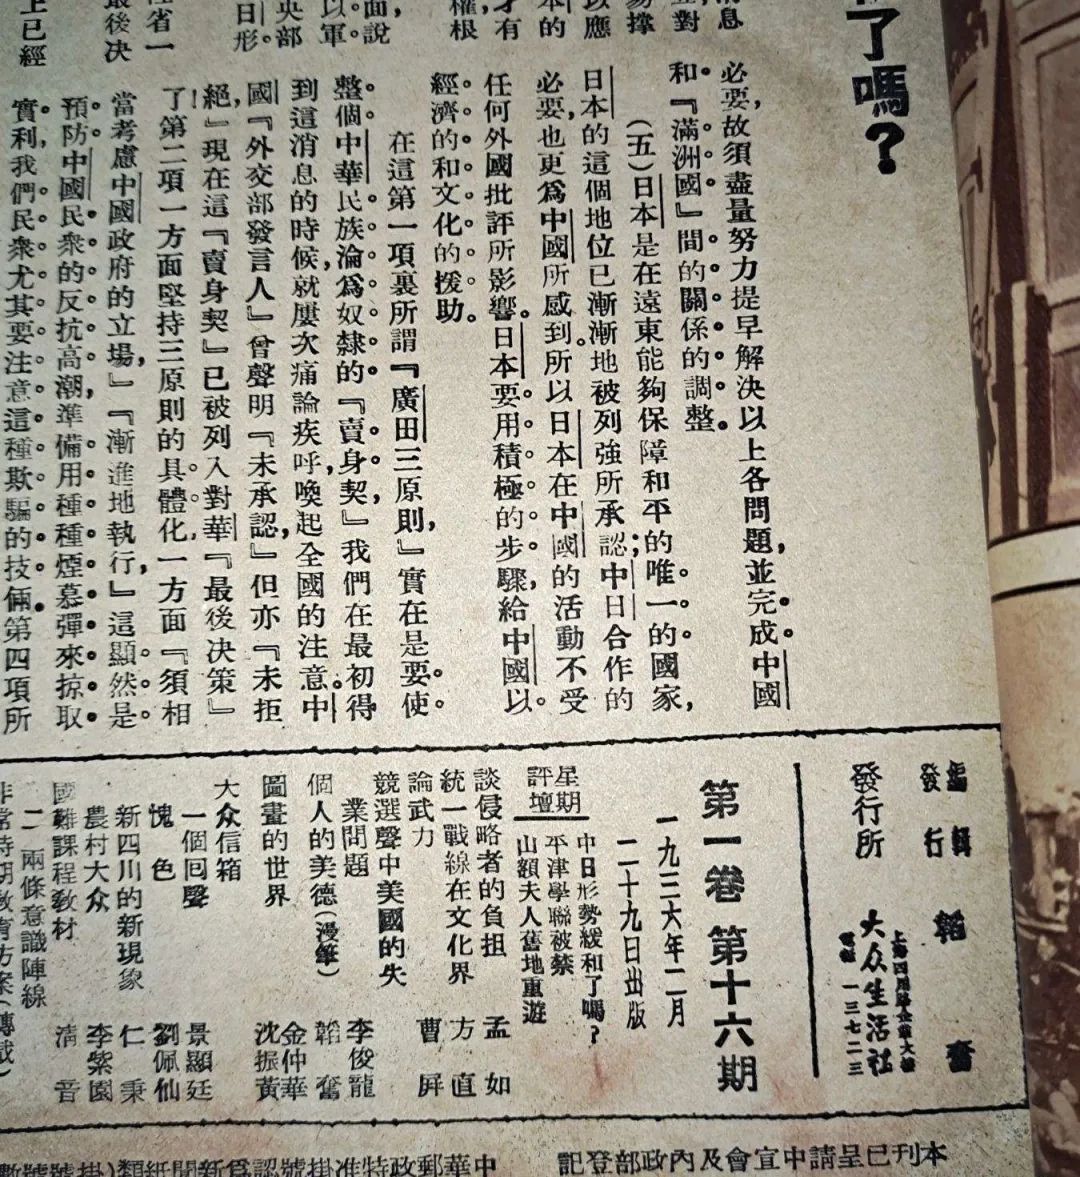 了嗎?
消息
並對
易撐
以應
本的
才有
權根
面說
以軍
央部
日形
省一
最後決
上已經
必要,故須盡量努力提早解決以上各問題,並完成中國
和『滿洲國』間的關係的調整。
(五)日本是在遠東能夠保障和平的唯一的國家,
日本的這個地位已漸漸地被列強所承認;中日合作的
必要,也更爲中國所感到。所以日本在中國的活動不受
任何外國批評所影響。日本要用積極的步驟,給中國以
經濟的和文化的援助。
在這第一項裏所謂『廣田三原則,』實在是要使
整個中華民族淪爲奴隸的『賣身契,』我們在最初得
到這消息的時候,就屢次痛論疾呼,喚起全國的注意。中
國『外交部發言人』曾聲明『未承認,』但亦『未拒
絕,』現在這『賣身契』已被列入對華『最後决策』
了!第二項一方面堅持三原則的具體化,一方面『須相
當考慮中國政府的立場,』『漸進地執行,』這顯然是
預防中國民衆的反抗高潮,準備用種種煙慕彈來掠取
實利,我們民衆尤其要注意這種欺騙的技倆。第四項所
編輯 韜奮
發行
發行所 大众生活社
電話 一三七二三
第一卷 第十六期
一九三六年二月
二十九日出版
星期評壇
中日形勢緩和了嗎?
平津學聯被禁
山額夫人舊地重遊
談侵略者的負担 孟如
統一戰線在文化界 方直
論武力 曹屏
競選聲中美國的失
業問題 李俊龍
個人的美德(漫筆) 韜奮
圖畫的世界 金仲華 沈振黃
大众信箱
一個回聲 景顯廷
愧色 劉佩仙
新四川的新現象 仁秉
農村大众 李紫園
國難課程教材
二 兩條意識陣線 清音
非常時期教育方案(轉載)
本刊已呈請中宣會及內政部登記
中華郵政特准掛號認爲新聞紙類(掛號號數